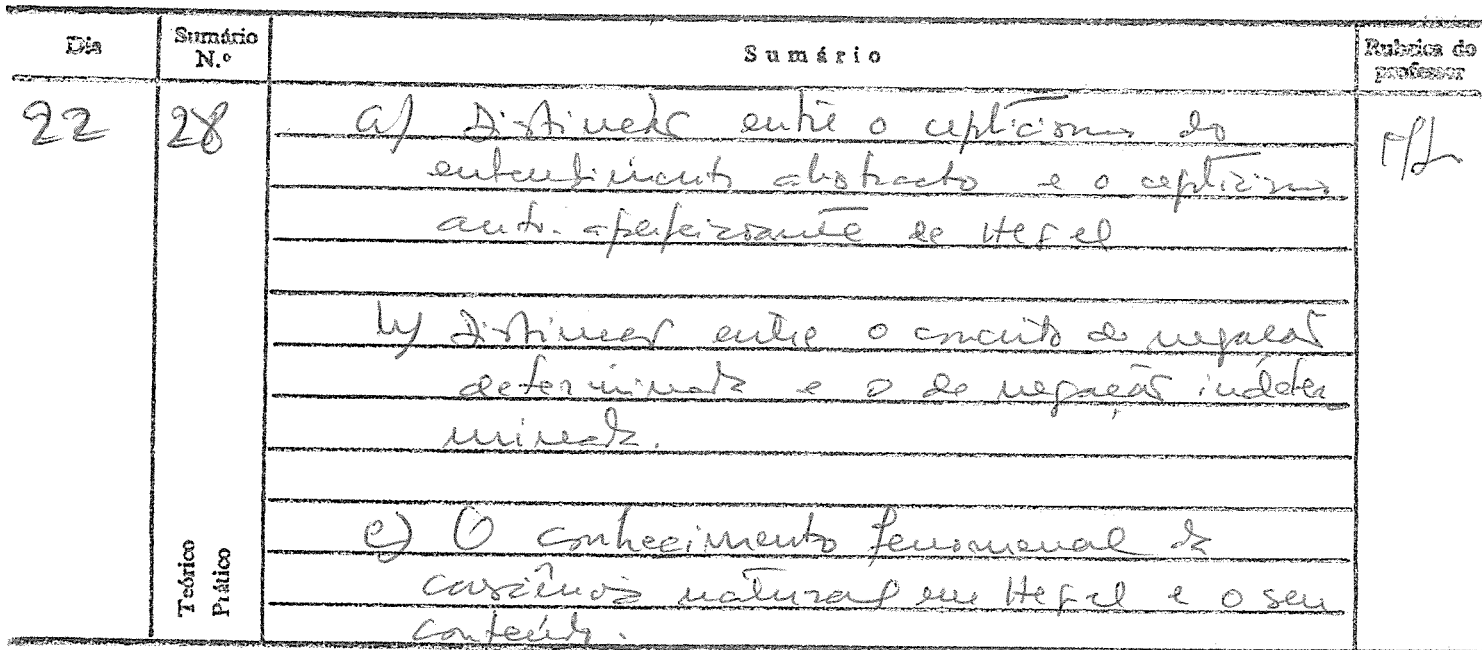 Dia Sumário N.º Sumário Rubrica do professor
22 28 a) Distinção entre o cepticismo do
entendimento abstracto e o cepticismo
auto-aperfeiçoante de Hegel
b) Distinção entre o conceito de negação
determinada e o de negação indeter
minada.
c) O conhecimento fenomenal da
consciência natural em Hegel e o seu
conteúdo.
Teórico
Prático